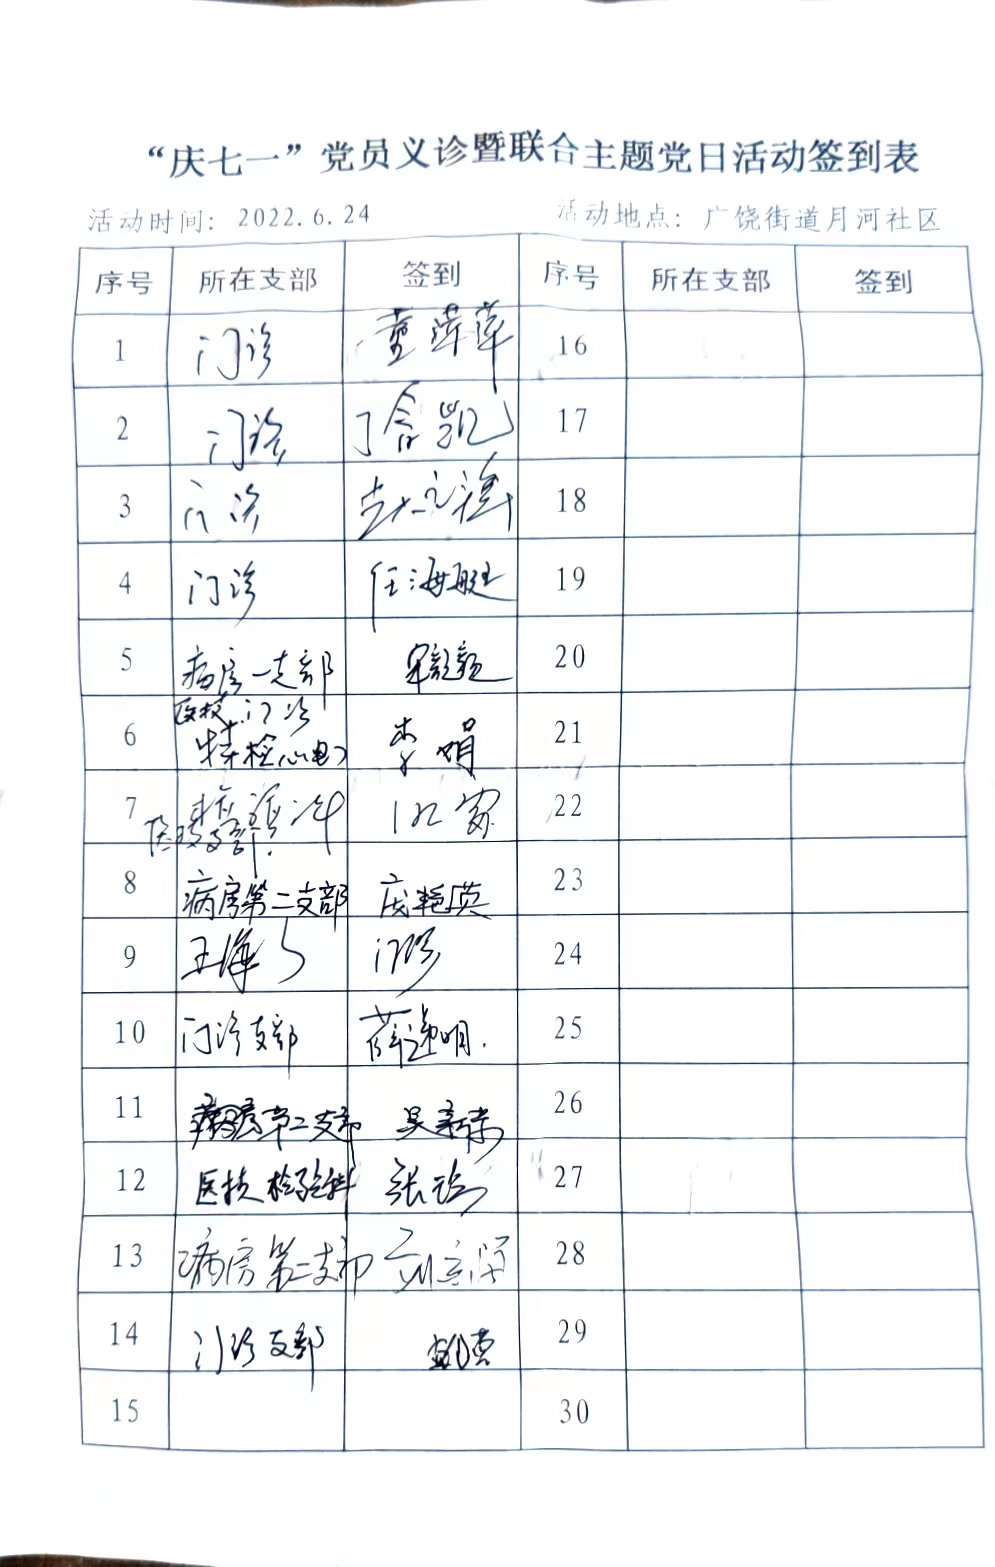 “庆七一”党员义诊暨联合主题党日活动签到表
活动时间：2022.6.24 活动地点：广饶街道月河社区
序号 所在支部 签到 序号 所在支部 签到
1 门诊 董萍萍 16
2 门诊 丁含凯 17
3 门诊 18
4 门诊 任海艇 19
5 病房一支部 20
6 医技 门诊 特检(心电) 李娟 21
7 医技支部 22
8 病房第二支部 成艳英 23
9 王海 门诊 24
10 门诊支部 薛递明. 25
11 病房第二支部 吴素荣 26
12 医技检验科 张 27
13 病房第二支部 刘 28
14 门诊支部 29
15 30